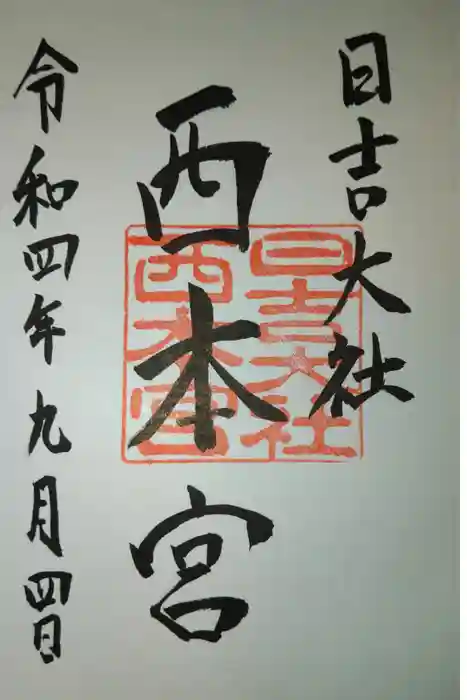 日吉大社
西本宮
令和四年九月四日
日吉大社
西本宮